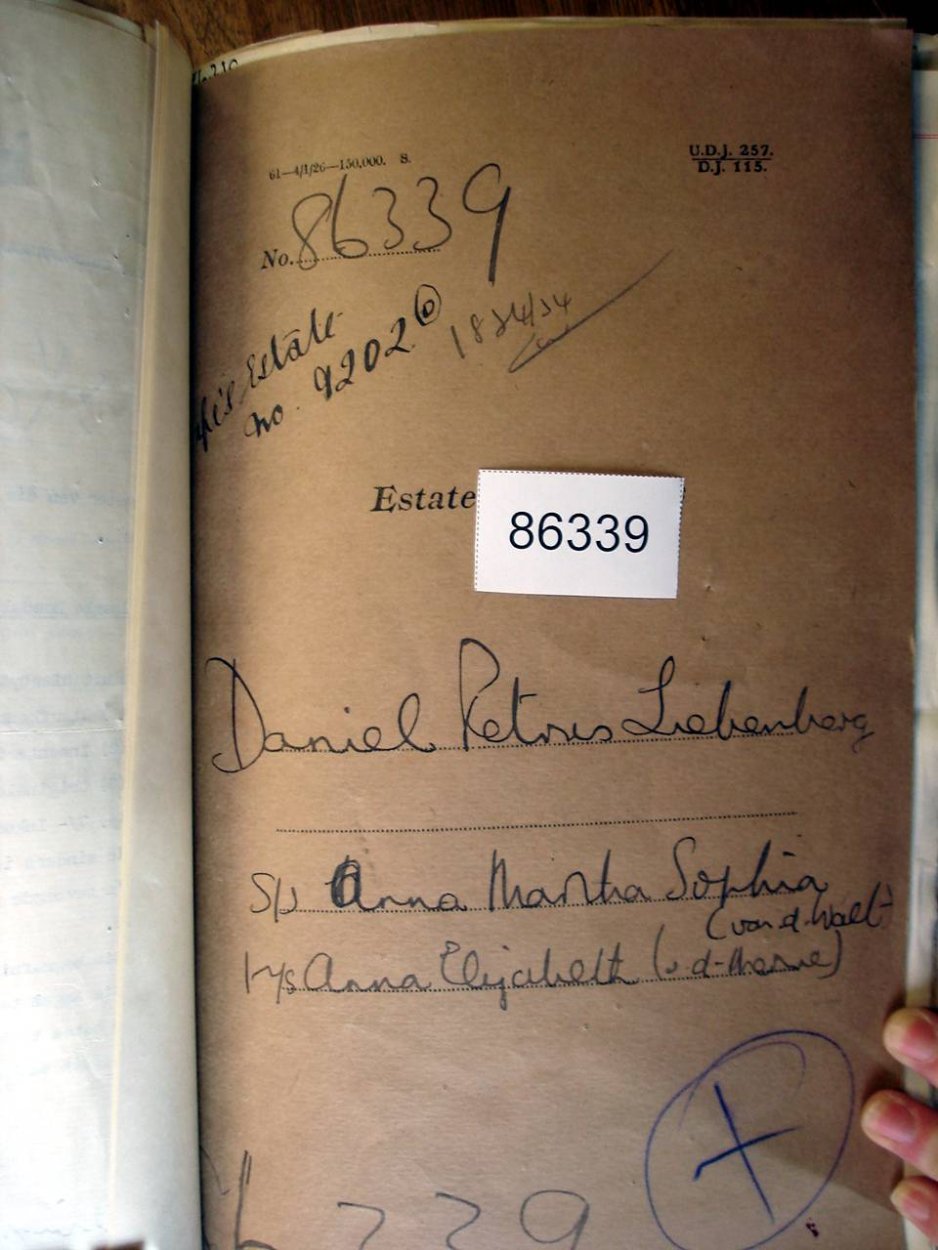 61—4/1/26—150,000. S.
U.D.J. 257.
D.J. 115.
No. 86339
Estate
no. 9202
Estate
86339
Daniel Petrus Liebenberg
s/s Anna Martha Sophia
(van d. Walt
Anna Elizabeth (v-d-Merwe)